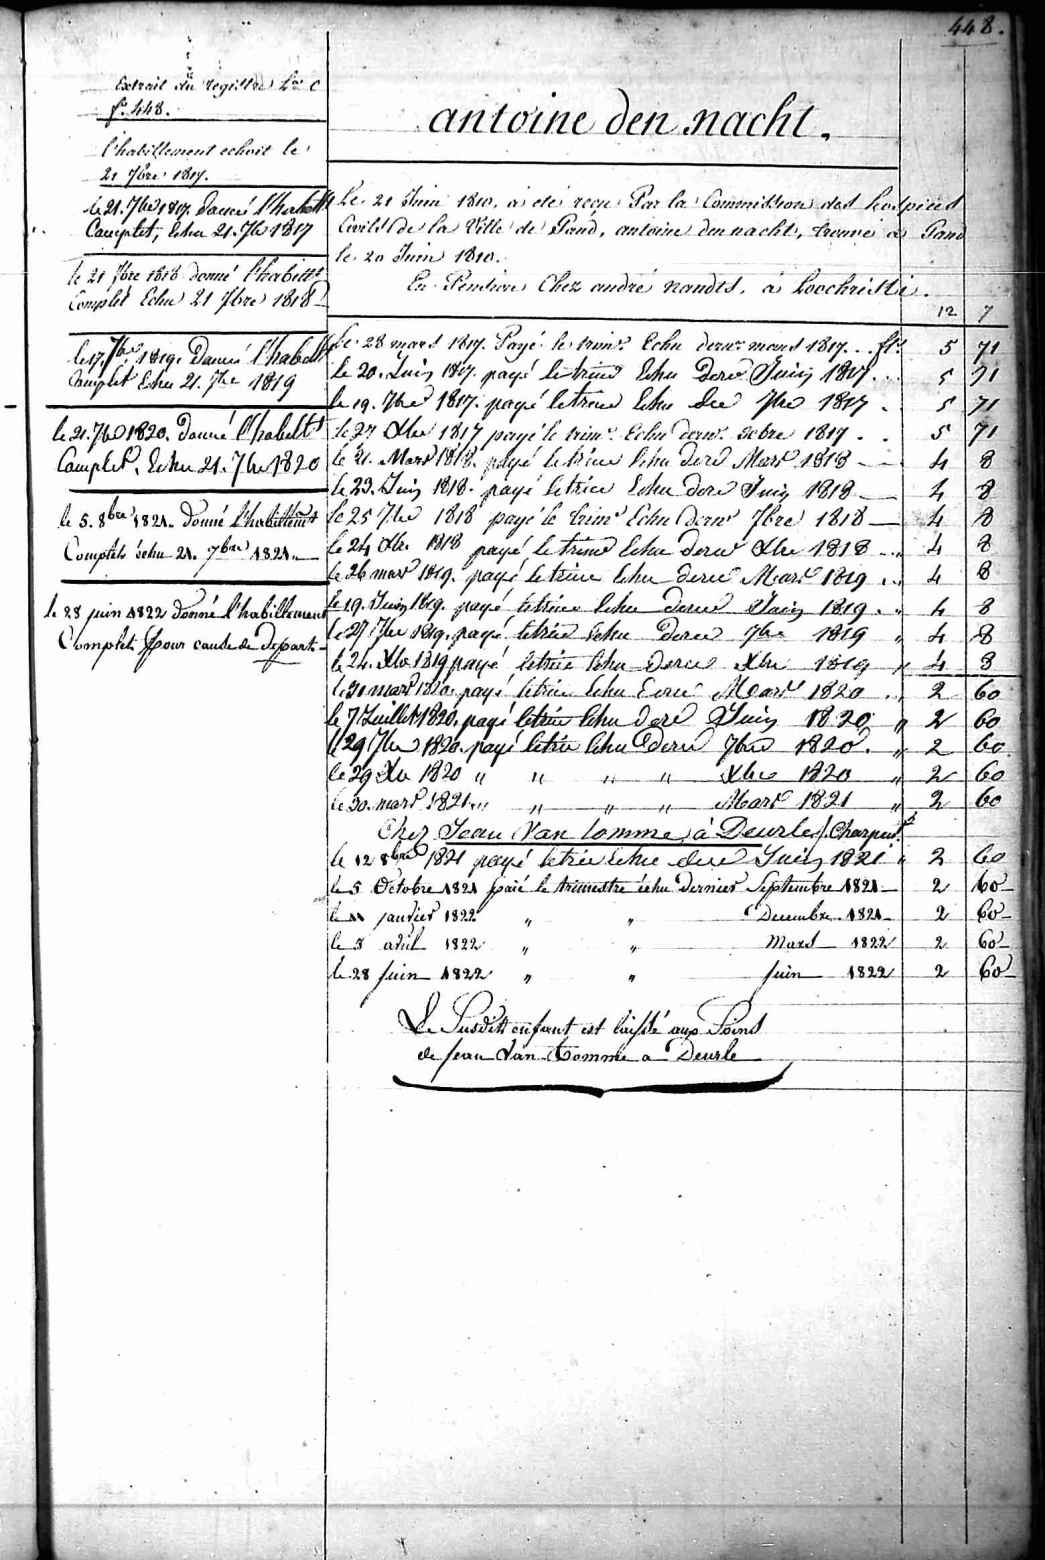 448.
Extrait du registre Lra C
fo. 448.
l'habillement echoit le
21 7bre 1817.
le 21. 7bre 1817. donné l'habillt
Complet, Echu 21. 7bre 1817
le 21 7bre 1818 donné l'habillt
Complet Echu 21 7bre 1818
le 17. 7bre 1819. Donné l'habillt
Complet Echu 21. 7bre 1819
le 21. 7bre 1820. Donné l'habillt
Complet, Echu 21. 7bre 1820
le 5. 8bre 1821. Donné l'habillement
Complet échu 21. 7bre 1821.
le 28 juin 1822 Donné l'habillement
Complet pour cause de Départ
antoine den nacht.
Le 21 Juin 1810. a été reçu Par la Commission des hospices
Civils de la Ville de Gand, antoine den nacht, trouvé a Gand
le 20 Juin 1810.
En Pension Chez andré nandts, à Loochristi.
12 7
Le 28 mars 1817. Payé le trimre Echu dernr mars 1817 . . . fls 5 71
le 20. Juin 1817. payé le trime Echu Dere Juin 1817 . . . 5 71
le 19. 7bre 1817. payé le trime Echu der 7bre 1817 . 5 71
le 27 Xbre 1817 payé le trimre Echu dernr xcbre 1817 . . 5 71
le 21. Mars 1818. payé le trime Echu dere Mars 1818 4 8
le 23. Juin 1818. payé le trime Echu dere Juin 1818 4 8
le 25 7bre 1818 payé le trimre Echu dernr 7bre 1818 4 8
le 24 Xbre 1818 payé le trime Echu dernr Xbre 1818 . . „ 4 8
le 26 mars 1819. payé le trime Echu dernr Mars 1819 . . „ 4 8
le 19. Juin 1819. payé le trime Echu dernr Juin 1819 . „ 4 8
le 27 7bre 1819. payé le trime Echu dernr 7bre 1819 „ 4 8
le 24. Xbre 1819 payé le trime Echu dernr Xbre 1819 „ 4 8
le 30 mars 1820. payé le trime Echu Dernr Mars 1820 . „ 2 60
le 7 Juillet 1820. payé le trime Echu dere Juin 1820 „ 2 60
le 29 7bre 1820. payé le trime Echu Dernr 7bre 1820. „ 2 60
le 29 Xbre 1820 „ „ „ „ Xbre 1820 „ 2 60
le 30. mars 1821. „ „ „ „ Mars 1821 „ 2 60
Chez Jean Van tomme, à Deurle /. Charpent.
le 12 8bre 1821 payé le trime Echu der Juin 1821 „ 2 60
le 5 Octobre 1821 païé le trimestre échu Dernier Septembre 1821 2 60
le 11 janvier 1822 „ „ Decembre 1821 2 60
le 5 avril 1822 „ „ Mars 1822 2 60
le 28 Juin 1822 „ „ Juin 1822 2 60
Le Susdit enfant est laissé aux Soins
de Jean Van Tomme a Deurle